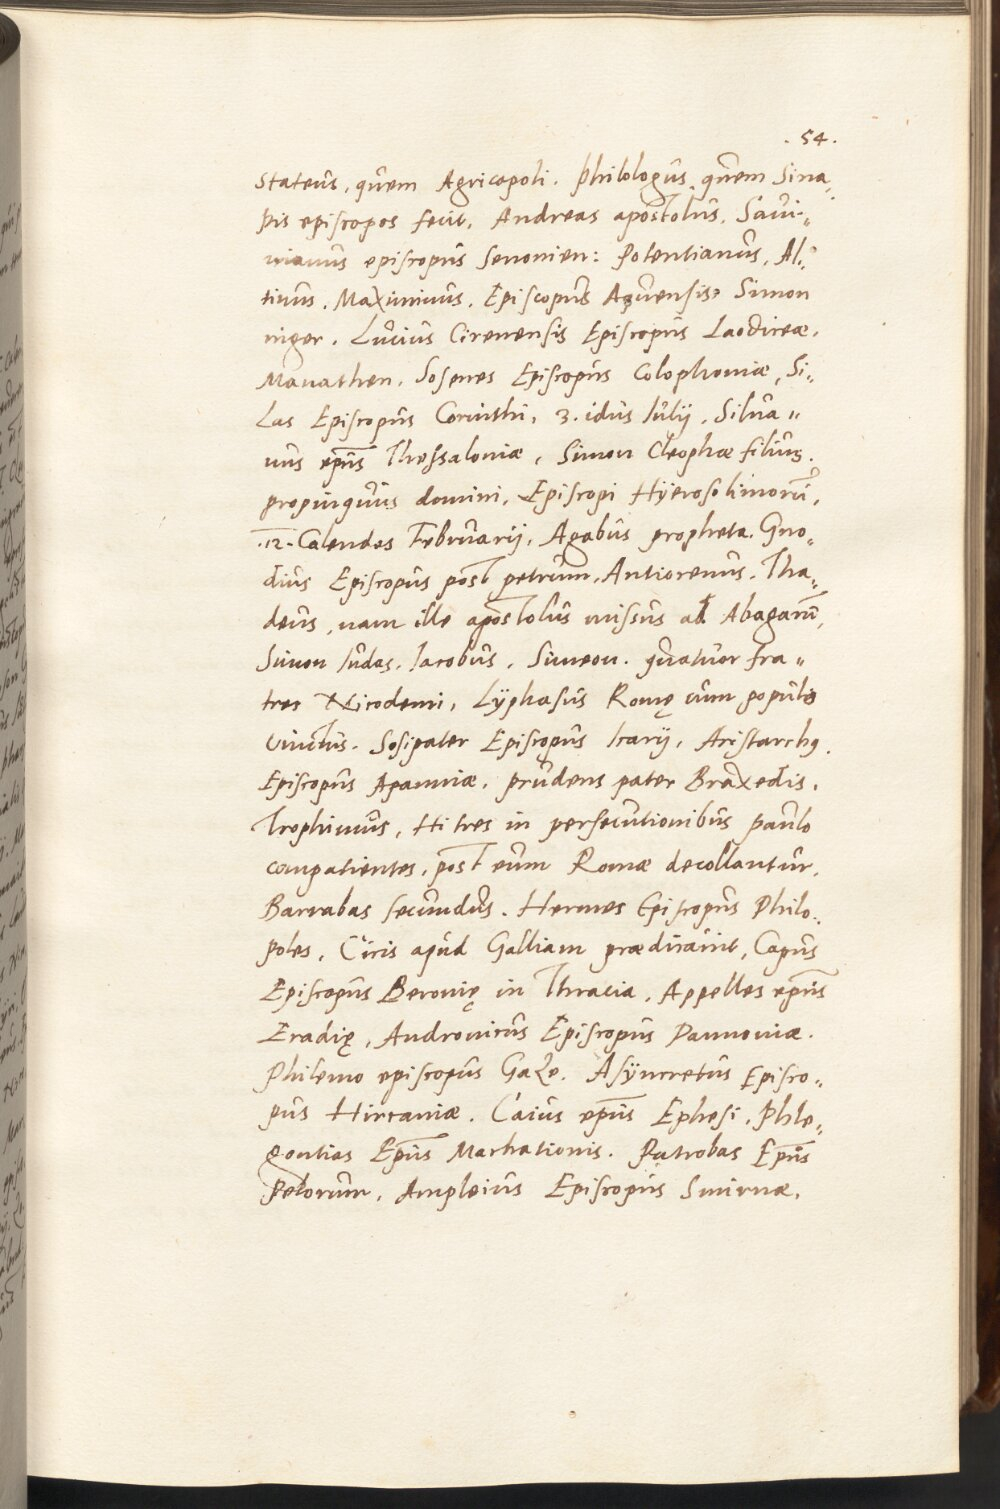 .54.
Stateus, quem Agricopoli. Philologus, quem Sina,,
pis episcopos fecit, Andreas apostolus. Savi,,
nianus episcopus Senonien: Potentianus, Al,,
tinus. Maximinus. Episcopus Aquensis, Simon
niger. Lucius Cirenensis Episcopus Laodiceæ.
Manathen. Sosenes Episcopus Colophoniæ, Si,,
las Episcopus Corinthi, 3. idus Iulij, Silua,,
nus ep̄us Thessaloniæ, Simon Cleophæ filius.
propinquus domini, Episcopi Hÿerosolimorū,
.12. Calendas Februarij, Agabus propheta. Gno,,
dius Episcopus post petrum, Antiocenus. Tha,,
deus, nam ille apostolus missus ad Abagarū,
Simon Iudas. Iacobus, Simeon. quatuor fra,,
tres Nicodemi, Lÿphasus Romę cum populis
Vinctus. Sosipater Episcopus Icarij, Aristarchꝯ.
Episcopus Apamiæ. prudens pater Braxedis.
Trophimus, Hi tres in persecutionibus paulo
compatientes, post eum Romæ decollantur.
Barnabas secundus. Hermes Episcopus Philo,,
poles, Ciris apud Galliam prædicavit, Capus
Episcopus Beronię in Thracia, Appelles ep̄us
Eradię, Andronicus Episcopus Pannoniæ.
Philemo episcopus Gaze. Asÿncretus Episco,,
pus Hircaniæ. Caius ep̄us Ephesi, Phle,,
gontias Ep̄us Marhationis. Patrobas Ep̄us
Petorum, Ampleius Episcopus Smirnæ,